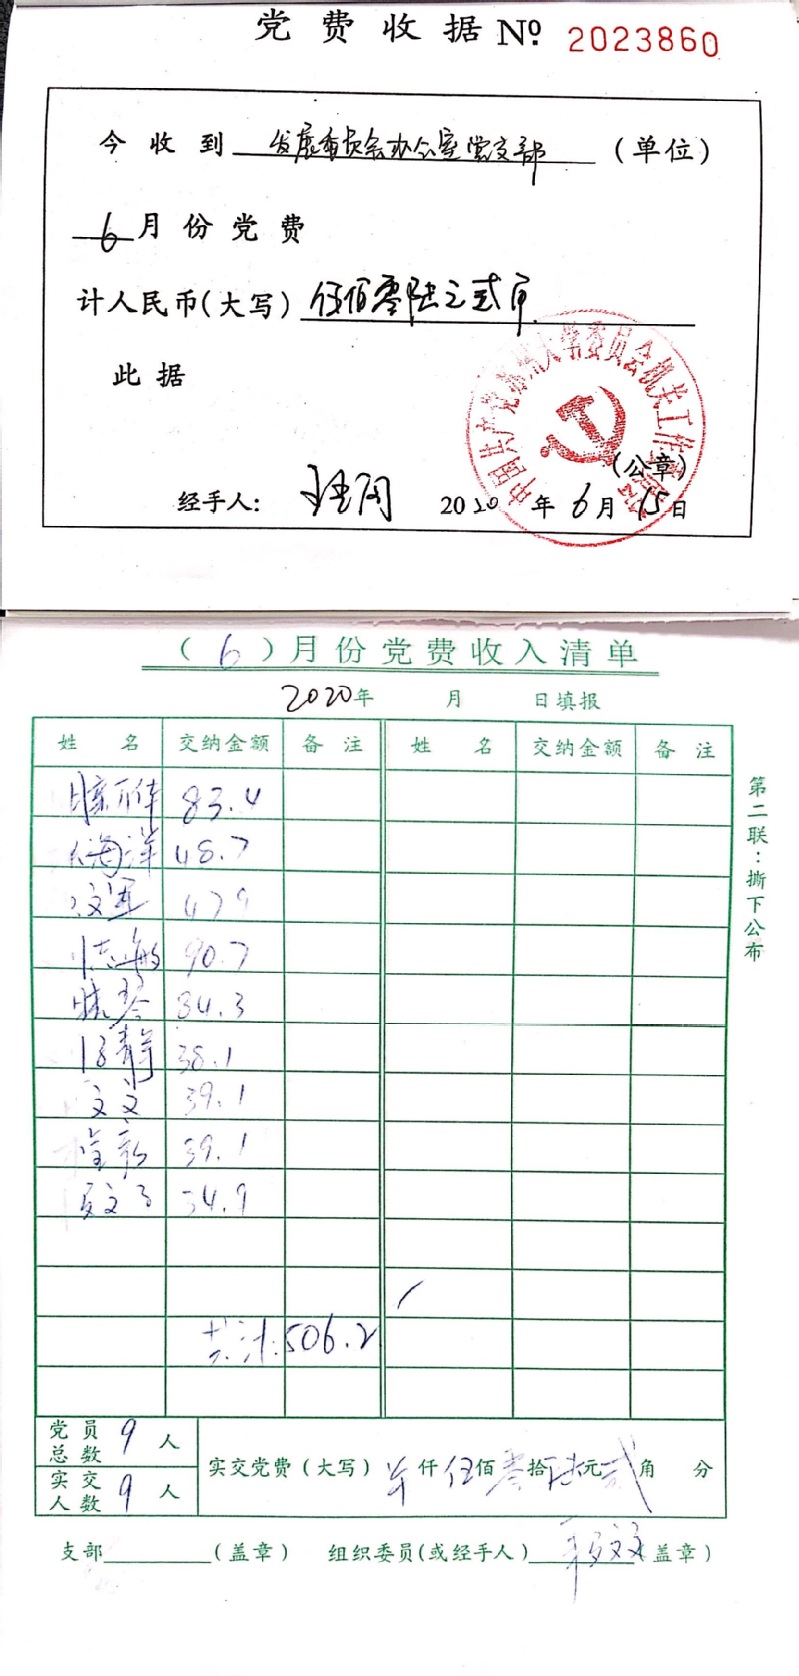 党费收据 № 2023860
今收到 发展委员会办公室党支部 (单位)
6月份党费
计人民币(大写) 伍佰零陆元贰角
此据
中国共产党苏州大学委员会机关工作委员会
(公章)
经手人: 2020年6月15日
(6)月份党费收入清单
2020年 月 日填报
姓名 交纳金额 备注 姓名 交纳金额 备注
83.4
海洋 48.7
文 47.9
志敏 90.7
琴 84.3
静 38.1
文文 39.1
39.1
文 34.9
共计:506.2
第二联:撕下公布
党员总数 9 人
实交人数 9 人
实交党费(大写) 仟伍佰零拾陆元贰角 分
支部 (盖章) 组织委员(或经手人) (盖章)